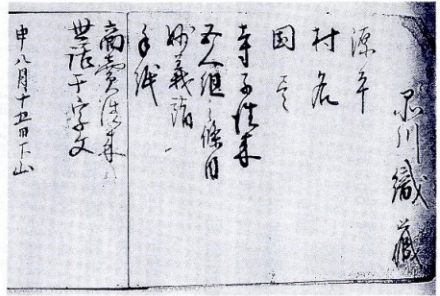 川織蔵
源平
村名
国尽
寺子往来
五人組條目
妙義詣
手紙
商賣往来
世話千字文
申八月十五日下山